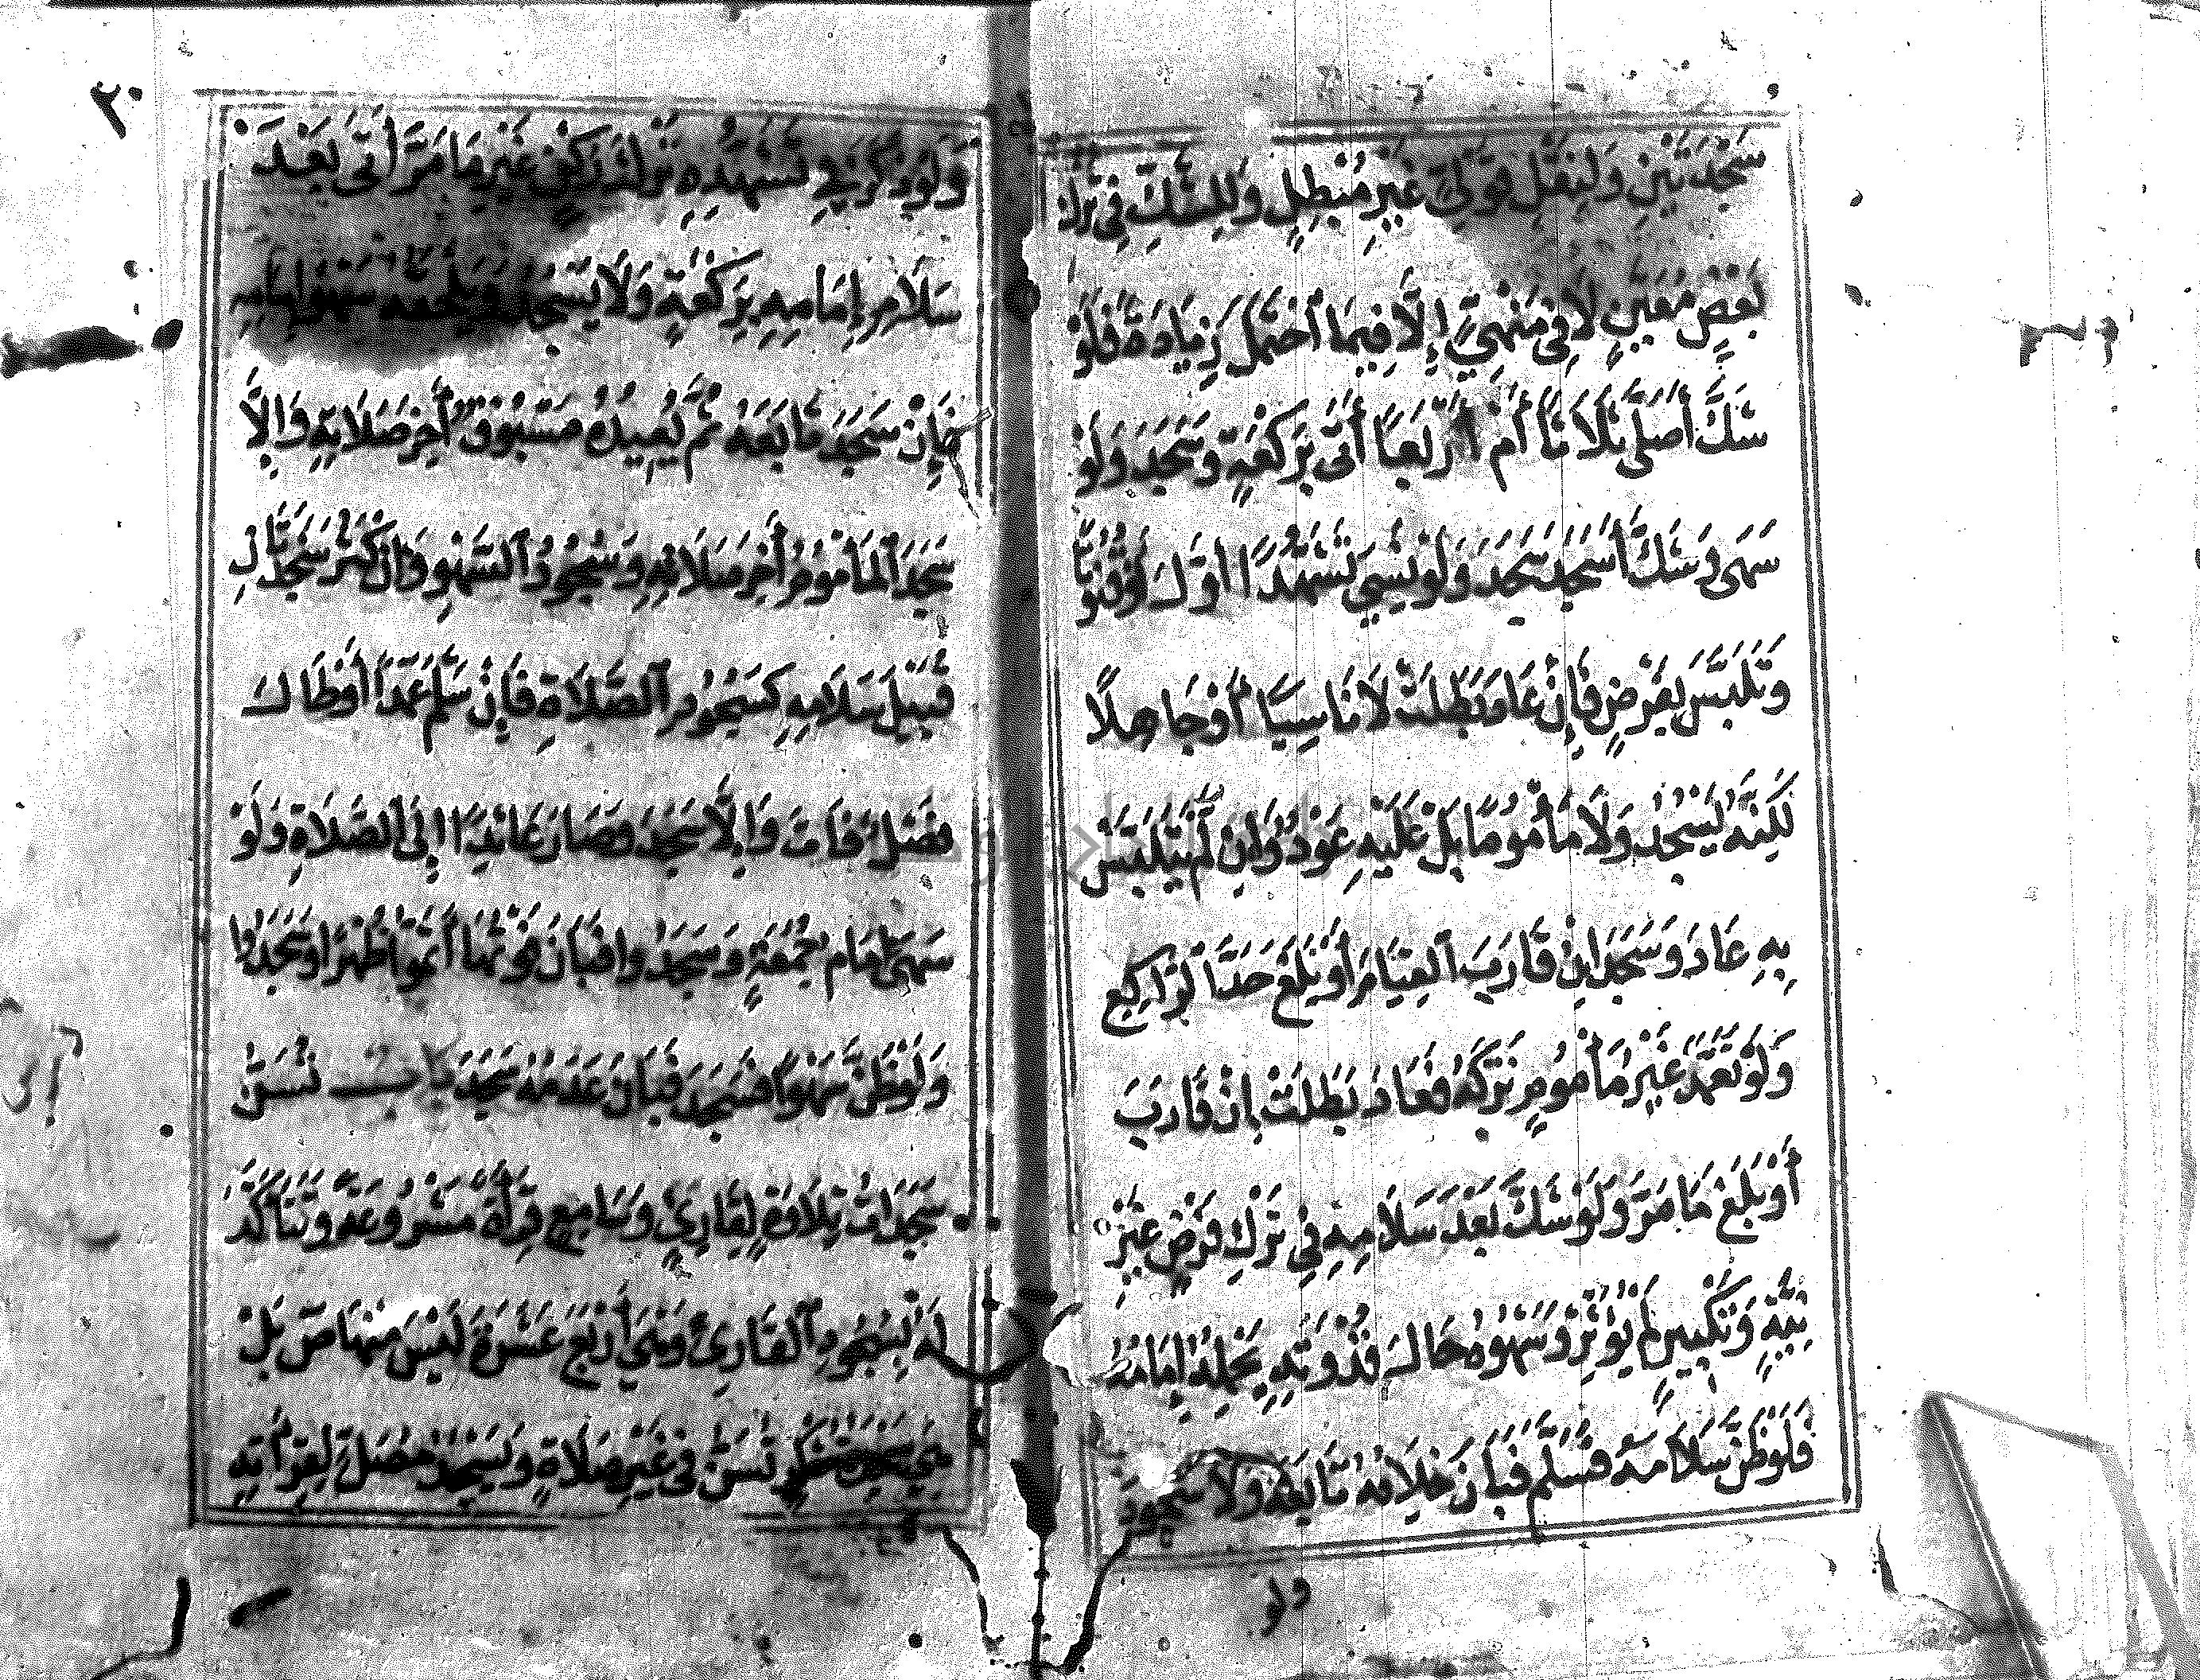 سَجْدَتَيْنِ وَلِنَقْلِ قَوْلِيٍّ غَيْرِ مُبْطِلٍ وَلِلشَّكِّ فِي تَرْكِ
بَعْضٍ مُعَيَّنٍ لَا فِي مَنْهِيٍّ إِلَّا فِيمَا احْتَمَلَ زِيَادَةً فَلَوْ
شَكَّ أَصَلَّى ثَلَاثًا أَمْ أَرْبَعًا أَتَى بِرَكْعَةٍ وَسَجَدَ وَلَوْ
سَهَى وَشَكَّ أَسَجَدَ سَجَدَ وَلَوْ نَسِيَ تَشَهُّدًا أَوَّلَ أَوْ قُنُوتًا
وَتَلَبَّسَ بِفَرْضٍ فَإِنْ عَادَ بَطَلَتْ لَا نَاسِيًا أَوْ جَاهِلًا
لَكِنَّهُ يَسْجُدُ وَلَا مَأْمُومًا بَلْ عَلَيْهِ عَوْدٌ وَإِنْ لَمْ يَتَلَبَّسْ
بِهِ عَادَ وَسَجَدَ إِنْ قَارَبَ الْقِيَامَ أَوْ بَلَغَ حَدَّ الرَّاكِعِ
وَلَوْ تَعَمَّدَ غَيْرُ مَأْمُومٍ تَرْكَهُ فَعَادَ بَطَلَتْ إِنْ قَارَبَ
أَوْ بَلَغَ مَا مَرَّ وَلَوْ شَكَّ بَعْدَ سَلَامِهِ فِي تَرْكِ فَرْضٍ غَيْرِ
نِيَّةٍ وَتَكْبِيرٍ لَمْ يُؤَثِّرْ وَسَهْوُهُ حَالَ قُدْوَتِهِ يَحْمِلُهُ إِمَامُهُ
فَلَوْ ظَنَّ سَلَامَهُ فَسَلَّمَ فَبَانَ خِلَافُهُ تَابَعَهُ وَلَا سُجُودَ
ولو
٣٠
وَلَوْ ذَكَرَ فِي تَشَهُّدِهِ تَرْكَ رُكْنٍ غَيْرِ مَا مَرَّ أَتَى بَعْدَ
سَلَامِ إِمَامِهِ بِرَكْعَةٍ وَلَا يَسْجُدُ وَيَلْحَقُهُ سَهْوُ إِمَامِهِ
فَإِنْ سَجَدَ تَابَعَهُ ثُمَّ يُعِيدُهُ مَسْبُوقٌ آخِرَ صَلَاتِهِ وَإِلَّا
سَجَدَ الْمَأْمُومُ آخِرَ صَلَاتِهِ وَسُجُودُ السَّهْوِ وَإِنْ كَثُرَ سَجْدَتَانِ
قُبَيْلَ سَلَامِهِ كَسُجُودِ الصَّلَاةِ فَإِنْ سَلَّمَ عَمْدًا أَوْ طَالَ
فَصْلٌ فَاتَ وَإِلَّا سَجَدَ وَصَارَ عَائِدًا إِلَى الصَّلَاةِ وَلَوْ
سَهَى إِمَام جُمْعَةٍ وَسَجَدُوا فَبَانَ فَوْتُهَا أَتَمُّوا ظُهْرًا وَسَجَدُوا
وَلَوْ ظَنَّ سَهْوًا فَسَجَدَ فَبَانَ عَدَمُهُ سَجَدَ بَابٌ تُسَنُّ
سَجَدَاتُ تِلَاوَةٍ لِقَارِئٍ وَسَامِعٍ قِرَأَةً مَشْرُوعَةً وَتَتَأَكَّدُ
لَهُ بِسُجُودِ الْقَارِئِ وَهِيَ أَرْبَعَ عَشْرَةَ لَيْسَ مِنْهَا صٓ بَلْ
هِيَ سَجْدَةُ شُكْرٍ تُسَنُّ فِي غَيْرِ صَلَاةٍ وَيَسْجُدُ مُصَلٍّ لِقِرَأَتِهِ